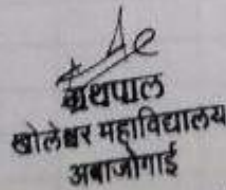 ग्रंथपाल
खोलेश्वर महाविद्यालय
अंबाजोगाई